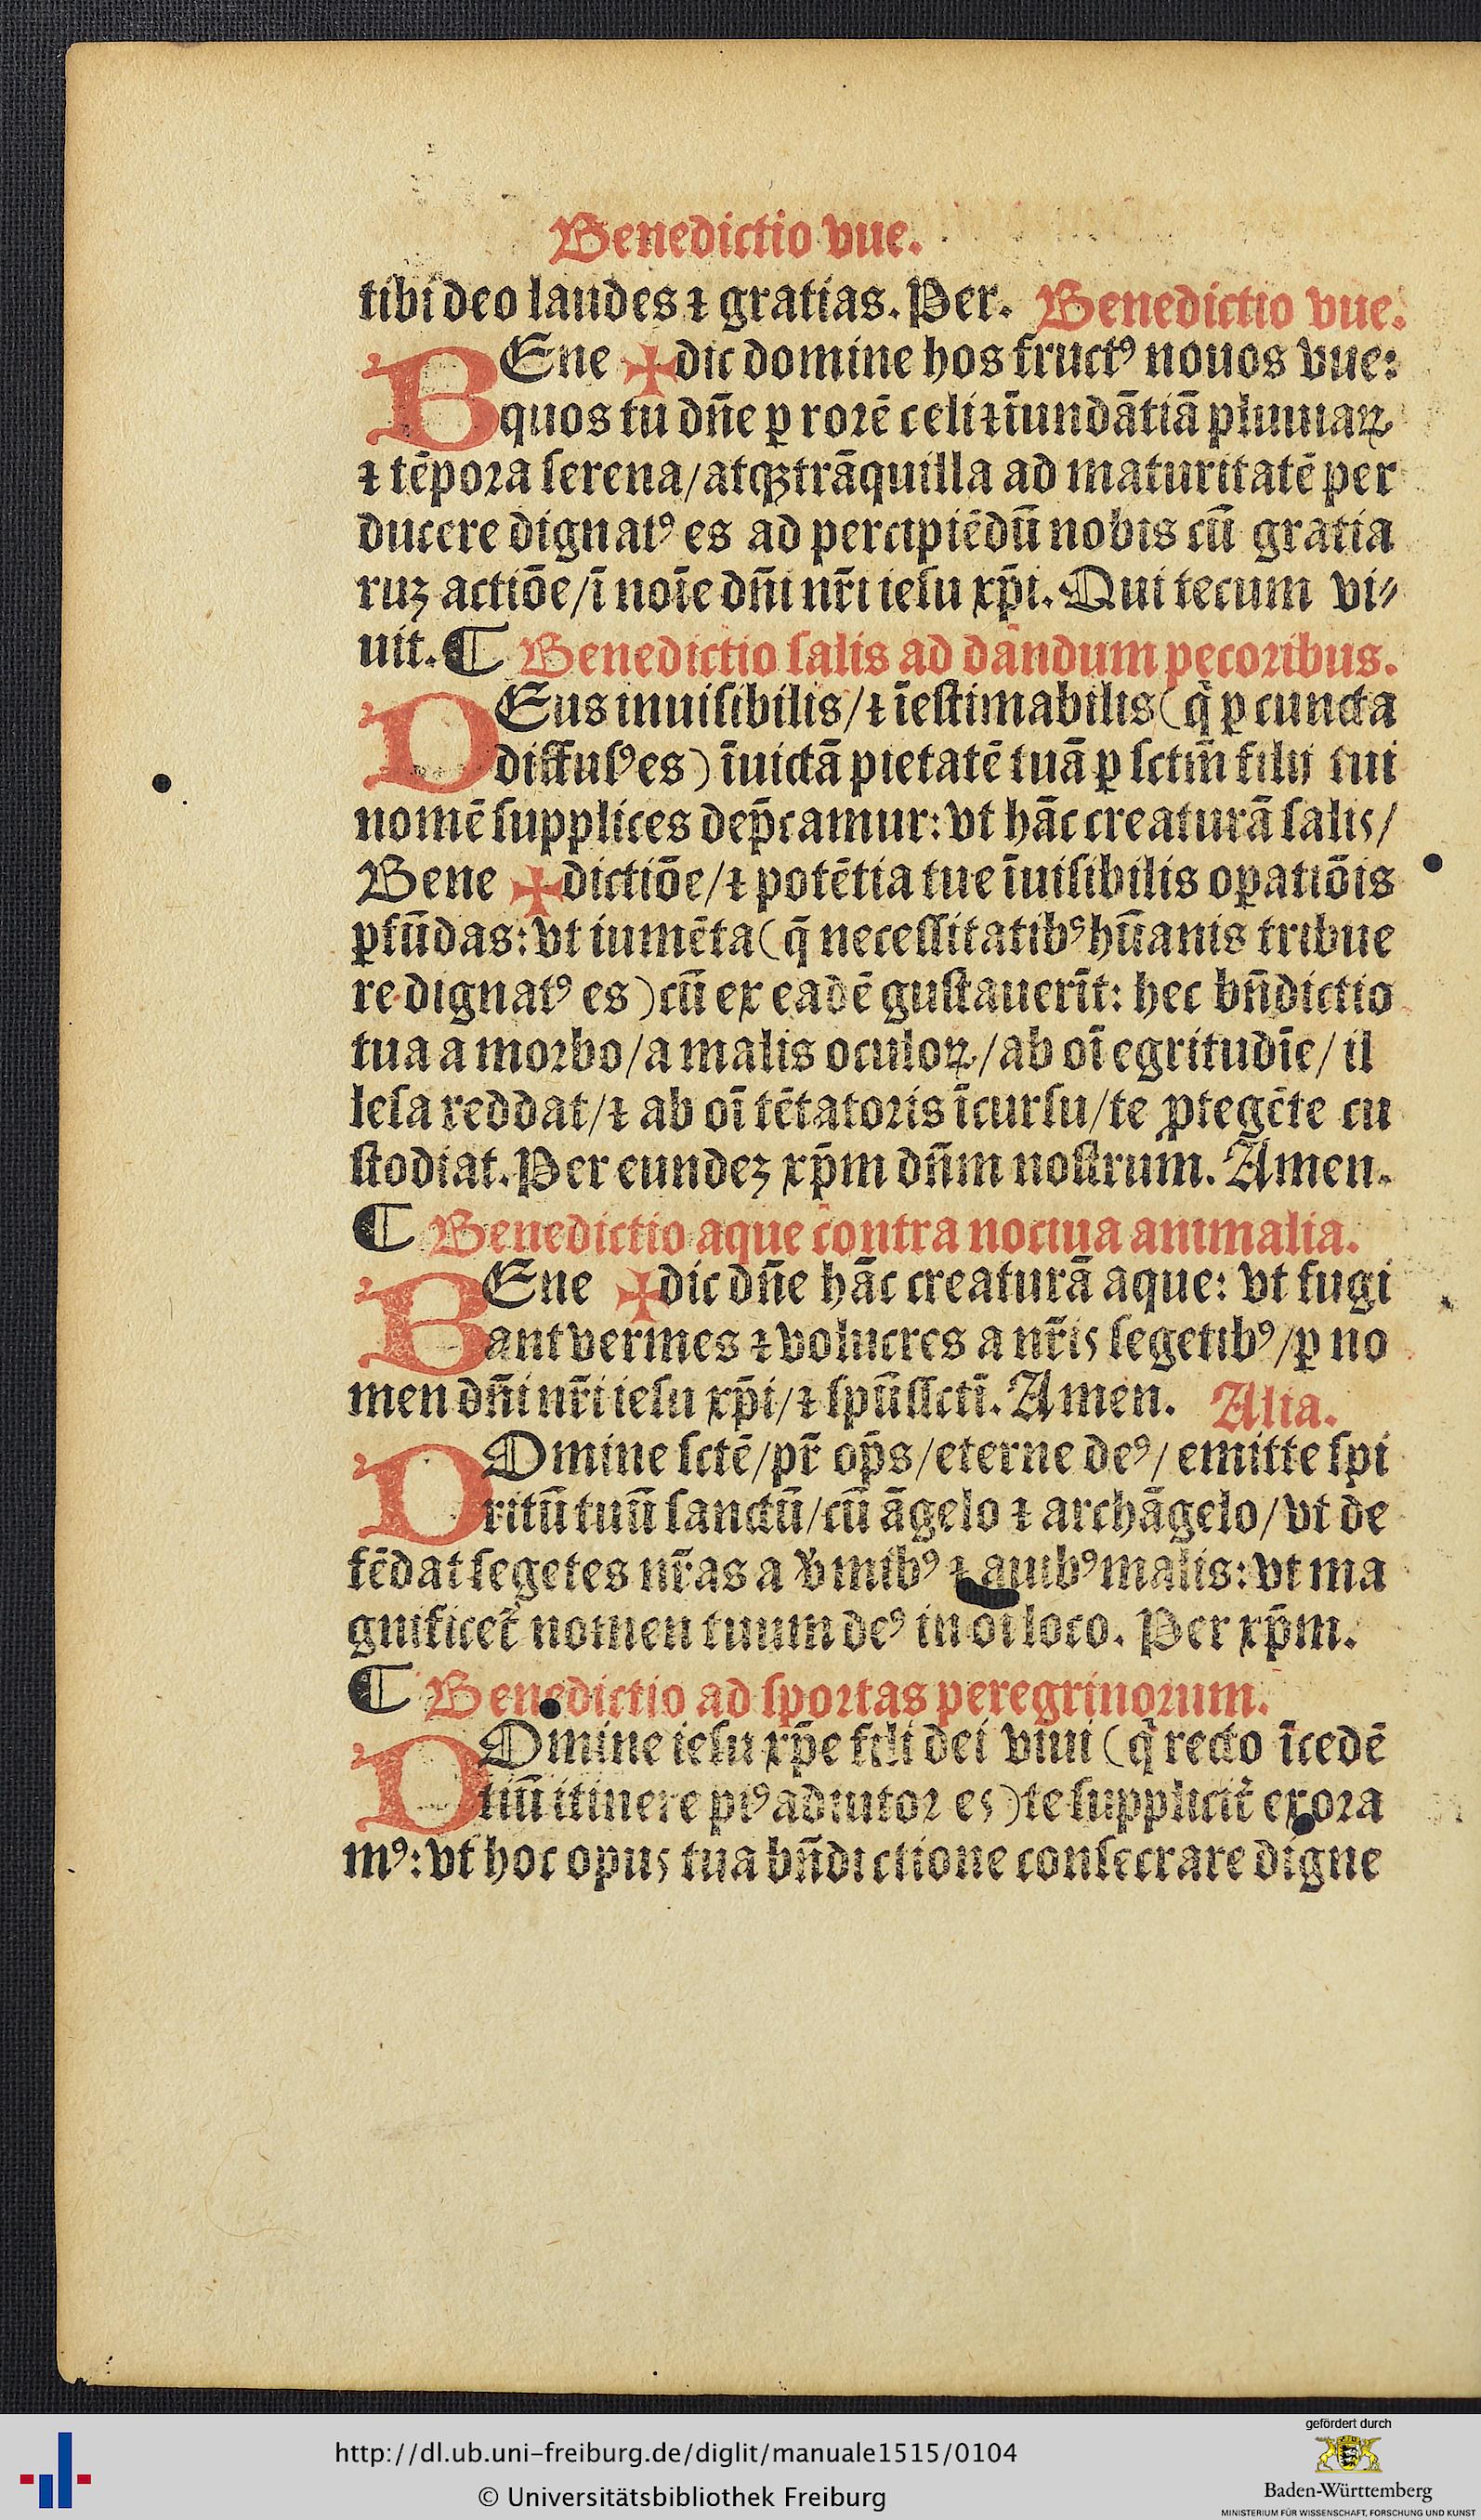 Benedictio vue.
tibi deo laudes ⁊ gratias. Per. Benedictio vue.
BEne ✠ dic domine hos fructꝰ nouos vue:
quos tu dn̄e ꝑ rorē celi ⁊ īundātiā pluuiaꝝ
⁊ tēpora serena/atqꝫ trāquilla ad maturitatē per
ducere dignatꝰ es ad percipiēdū nobis cū gratia
ruꝫ actiōe/ī noīe dn̄i nr̄i iesu xp̄i. Qui tecum vi⸗
uit. ¶ Benedictio salis ad dandum pecoribus.
DEus inuisibilis/⁊ īestimabilis (q̇ ꝑ cuncta
diffusꝰ es) īuictā pietatē tuā ꝑ sctm̄ filij tui
nomē supplices dep̄camur: vt hāc creaturā salis/
Bene ✠ dictiōe/⁊ potētia tue īuisibilis oꝑatiōis
ꝑfūdas: vt iumēta (q̄ necessitatibꝰ hūanis tribue
re dignatꝰ es) cū ex eadē gustauerīt: hec bn̄dictio
tua a morbo/a malis oculoꝝ/ab oī egritudīe/il
lesa reddat/⁊ ab oī tētatoris īcursu/te ꝓtegēte cu
stodiat. Per eundeꝫ xp̄m dn̄m nostrum. Amen.
¶ Benedictio aque contra nociua animalia.
BEne ✠ dic dn̄e hāc creaturā aque: vt fugi
ant vermes ⁊ volucres a nr̄is segetibꝰ/ꝑ no
men dn̄i nr̄i iesu xp̄i/⁊ spūssctī. Amen. Alia.
DOmine sctē/pr̄ op̄s/eterne deꝰ/emitte spi
ritū tuū sanctū/cū āgelo ⁊ archāgelo/vt de
fēdat segetes nr̄as a v̓mibꝰ ⁊ auibꝰ malis: vt ma
gnificet̄ nomen tuum deꝰ in oī loco. Per xp̄m.
¶ Benedictio ad sportas peregrinorum.
DOmine iesu xp̄e fili dei viui (q̇ recto īcedē
tiū itinere piꝰ adiutor es) te supplicit̓ exora
mꝰ: vt hoc opus tua bn̄dictione consecrare digne
http://dl.ub.uni-freiburg.de/diglit/manuale1515/0104
© Universitätsbibliothek Freiburg
gefördert durch
Baden-Württemberg
MINISTERIUM FÜR WISSENSCHAFT, FORSCHUNG UND KUNST